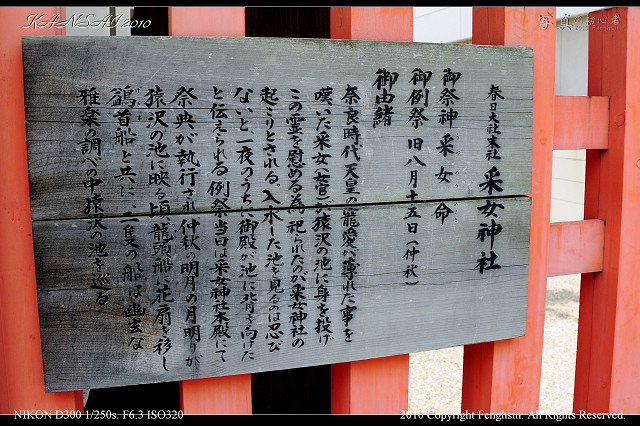 KANSAI 2010
写真の初心者
春日大社末社 采女神社
御祭神 采女命
うねめのみこと
御例祭 旧八月十五日(仲秋)
御由緒
奈良時代天皇の寵愛が薄れた事を
嘆いた采女(女官)が猿沢の池に身を投げ
この霊を慰める為祀られたのが采女神社の
起こりとされる。入水した池を見るのは忍び
ないと一夜のうちに御殿が池に背を向けた
と伝えられる例祭当日は采女神社本殿にて
祭典が執行され仲秋の明月の月明りが
猿沢の池に映る頃龍頭船に花扇を移し
鷁首船と共に、二隻の船は幽玄な
雅楽の調べの中猿沢の池を巡る
NIKON D300 1/250s. F6.3 ISO320
2010 Copyright Fenghsin. All Rights Reserved.